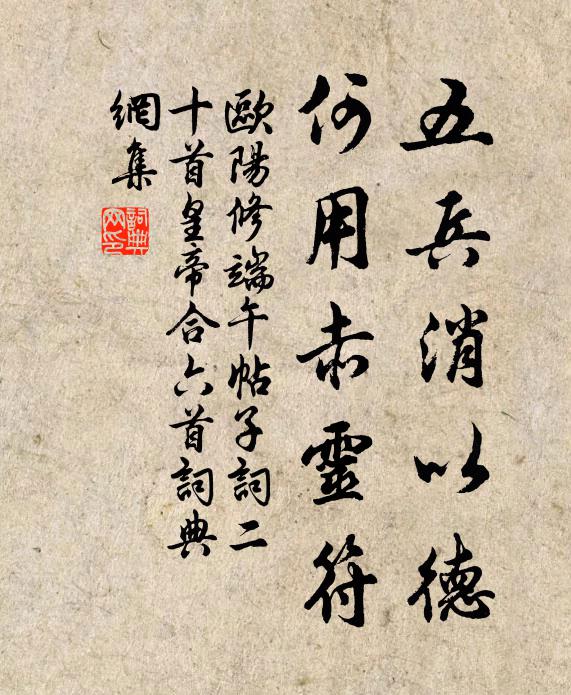 五兵消以德
何用赤靈符
歐陽修端午帖子詞二
十首皇帝合六首詞典
網集
詞典网印